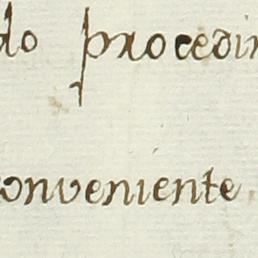 do procedi
conveniente